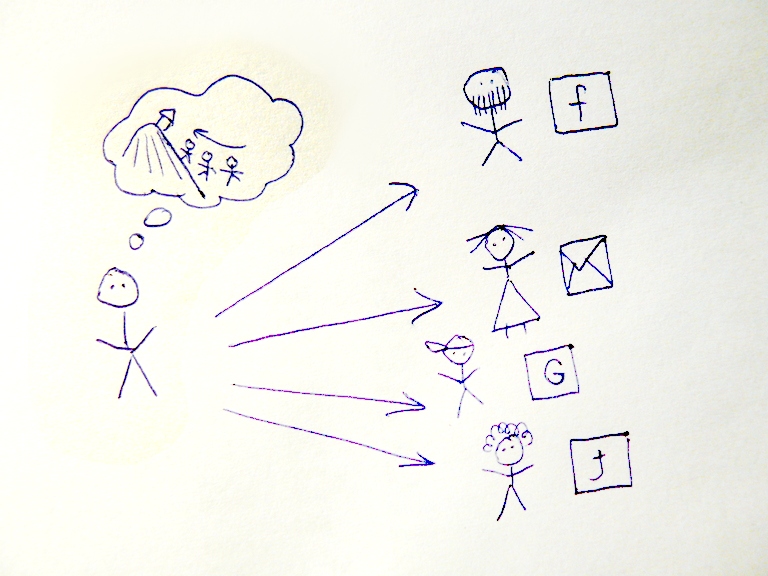 f
G
t